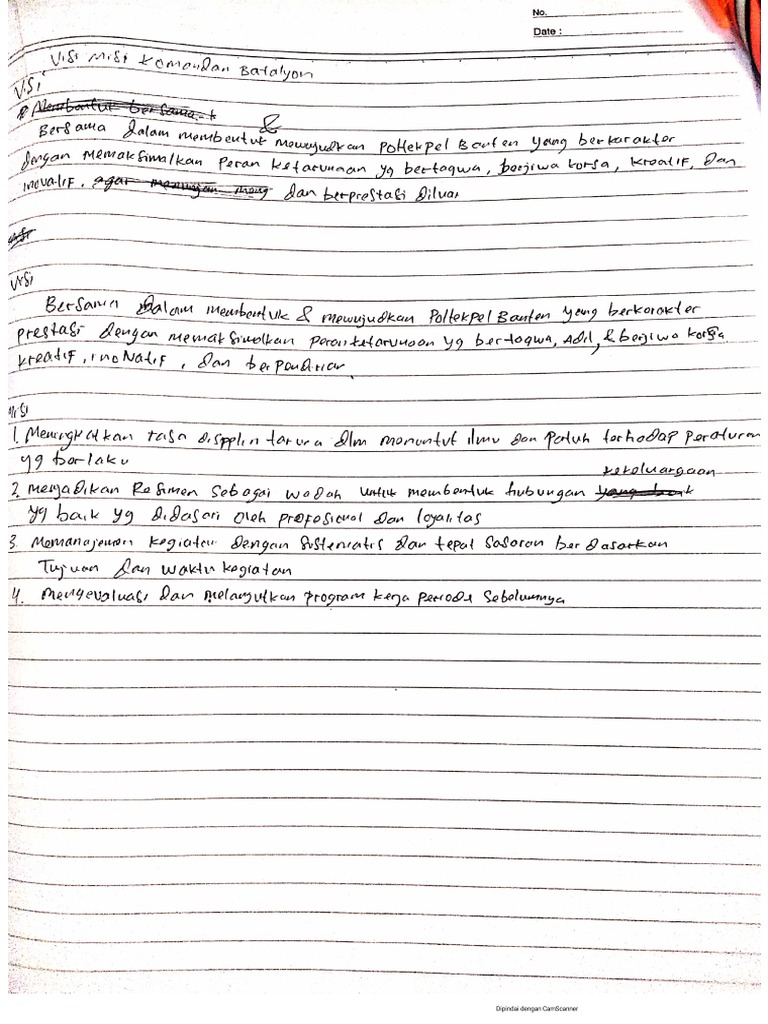 No.
Date :
Visi Misi Komandan Batalyon
Visi
Membentuk bersama
&
Bersama dalam membentuk mewujudkan Poltekpel Banten yang berkarakter
dengan memaksimalkan peran ketarunaan yg bertaqwa, berjiwa korsa, kreatif, dan
inovatif, agar dan berprestasi diluar
Visi
Bersama dalam membentuk & mewujudkan Poltekpel Banten yang berkarakter
prestasi dengan memaksimalkan peran ketarunaan yg bertaqwa, adil, & berjiwa korsa
kreatif, inovatif, dan berpendirian
Misi
1. Meningkatkan rasa disipplin taruna dlm menuntut ilmu dan patuh terhadap peraturan
yg berlaku
kekeluargaan
2. menjadikan Resimen sebagai wadah untuk membentuk hubungan
yg baik yg didasari oleh profosional dan loyalitas
3. Memanajemen kegiatan dengan sistematis dan tepat sasaran berdasarkan
Tujuan dan waktu kegiatan
4. mengevaluasi dan melanjutkan program kerja periode sebelumnya
Dipindai dengan CamScanner